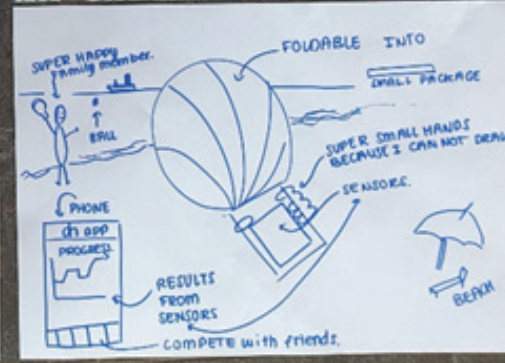 SUPER HAPPY
Family member.
FOLDABLE INTO
SMALL PACKAGE
BALL
SUPER SMALL HANDS
BECAUSE I CAN NOT DRAW
SENSORS.
PHONE
dh app
PROGRESS
RESULTS
FROM
SENSORS
COMPETE with friends.
BEACH